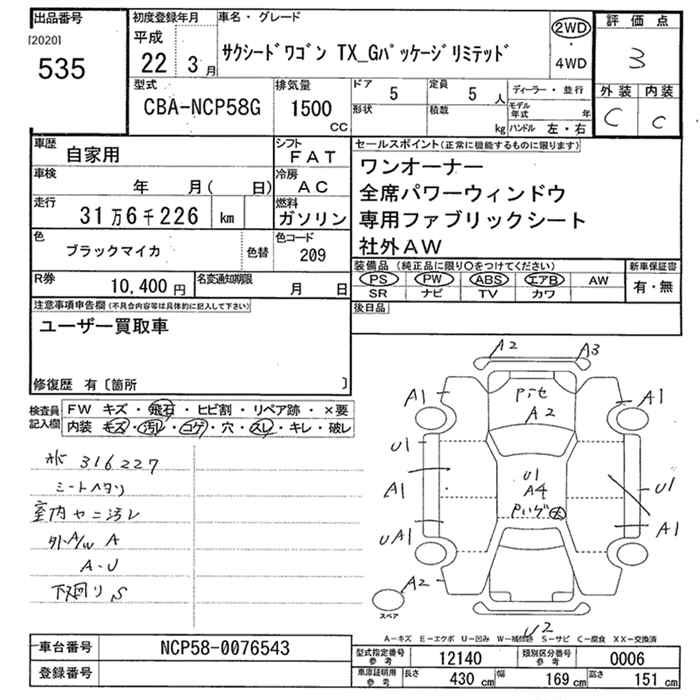 出品番号
[2020]
535
初度登録年月
平成
22 3月
車名・グレード
サクシードワゴン TX_Gパッケージリミテッド
2WD
・
4WD
評価点
3
外装 内装
C C
型式
CBA-NCP58G
排気量
1500
CC
ドア 5
形状
定員 5 人
積載 kg
ディーラー・並行
モデル年式 年
ハンドル 左・右
車歴 自家用
シフト FAT
車検 年 月( 日)
冷房 AC
走行 31万6千226 km
燃料 ガソリン
色 ブラックマイカ 色替
色コード 209
R券 10,400円
名変通知期限 月 日
セールスポイント(正常に機能するものに限ります)
ワンオーナー
全席パワーウィンドウ
専用ファブリックシート
社外AW
装備品(純正品に限り○をつけてください)
PS PW ABS エアB AW
SR ナビ TV カワ
新車保証書
有・無
後日品
注意事項申告欄(不具合内容等は具体的に記入して下さい)
ユーザー買取車
修復歴 有〔箇所 〕
検査員記入欄
FW キズ・飛石・ヒビ割・リペア跡・×要
内装 キズ・汚レ・コゲ・穴・スレ・キレ・破レ
316227
シートヘタリ
室内ヤニ汚レ
外A/W A
A-U
下廻りS
A2 A3
A1 A1
A2
U1
U1
A1 A4 U1
UA1 A1
A2
スペア
U2
A-キズ E-エクボ U-凹み W-補修跡 S-サビ C-腐食 XX-交換済
車台番号 NCP58-0076543
登録番号
型式指定番号参考 12140
類別区分番号参考 0006
車庫証明用参考 長さ 430 cm 幅 169 cm 高さ 151 cm